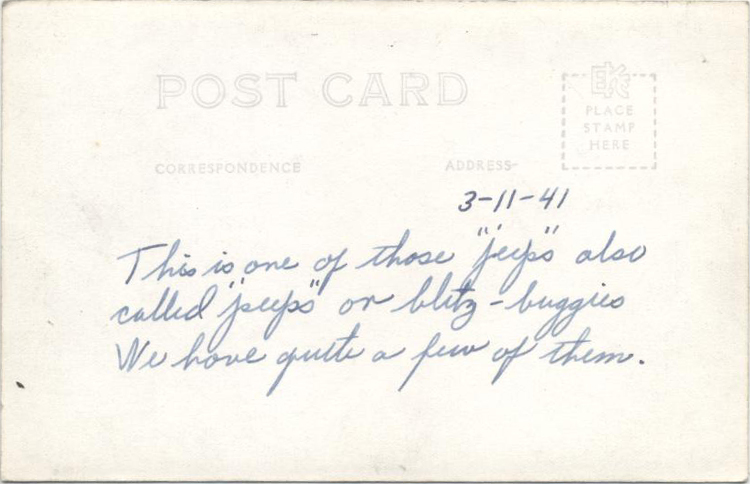 POST CARD
EKC
PLACE
STAMP
HERE
CORRESPONDENCE
ADDRESS-
3-11-41
This is one of those "jeeps" also
called "peeps" or blitz-buggies
We have quite a few of them.